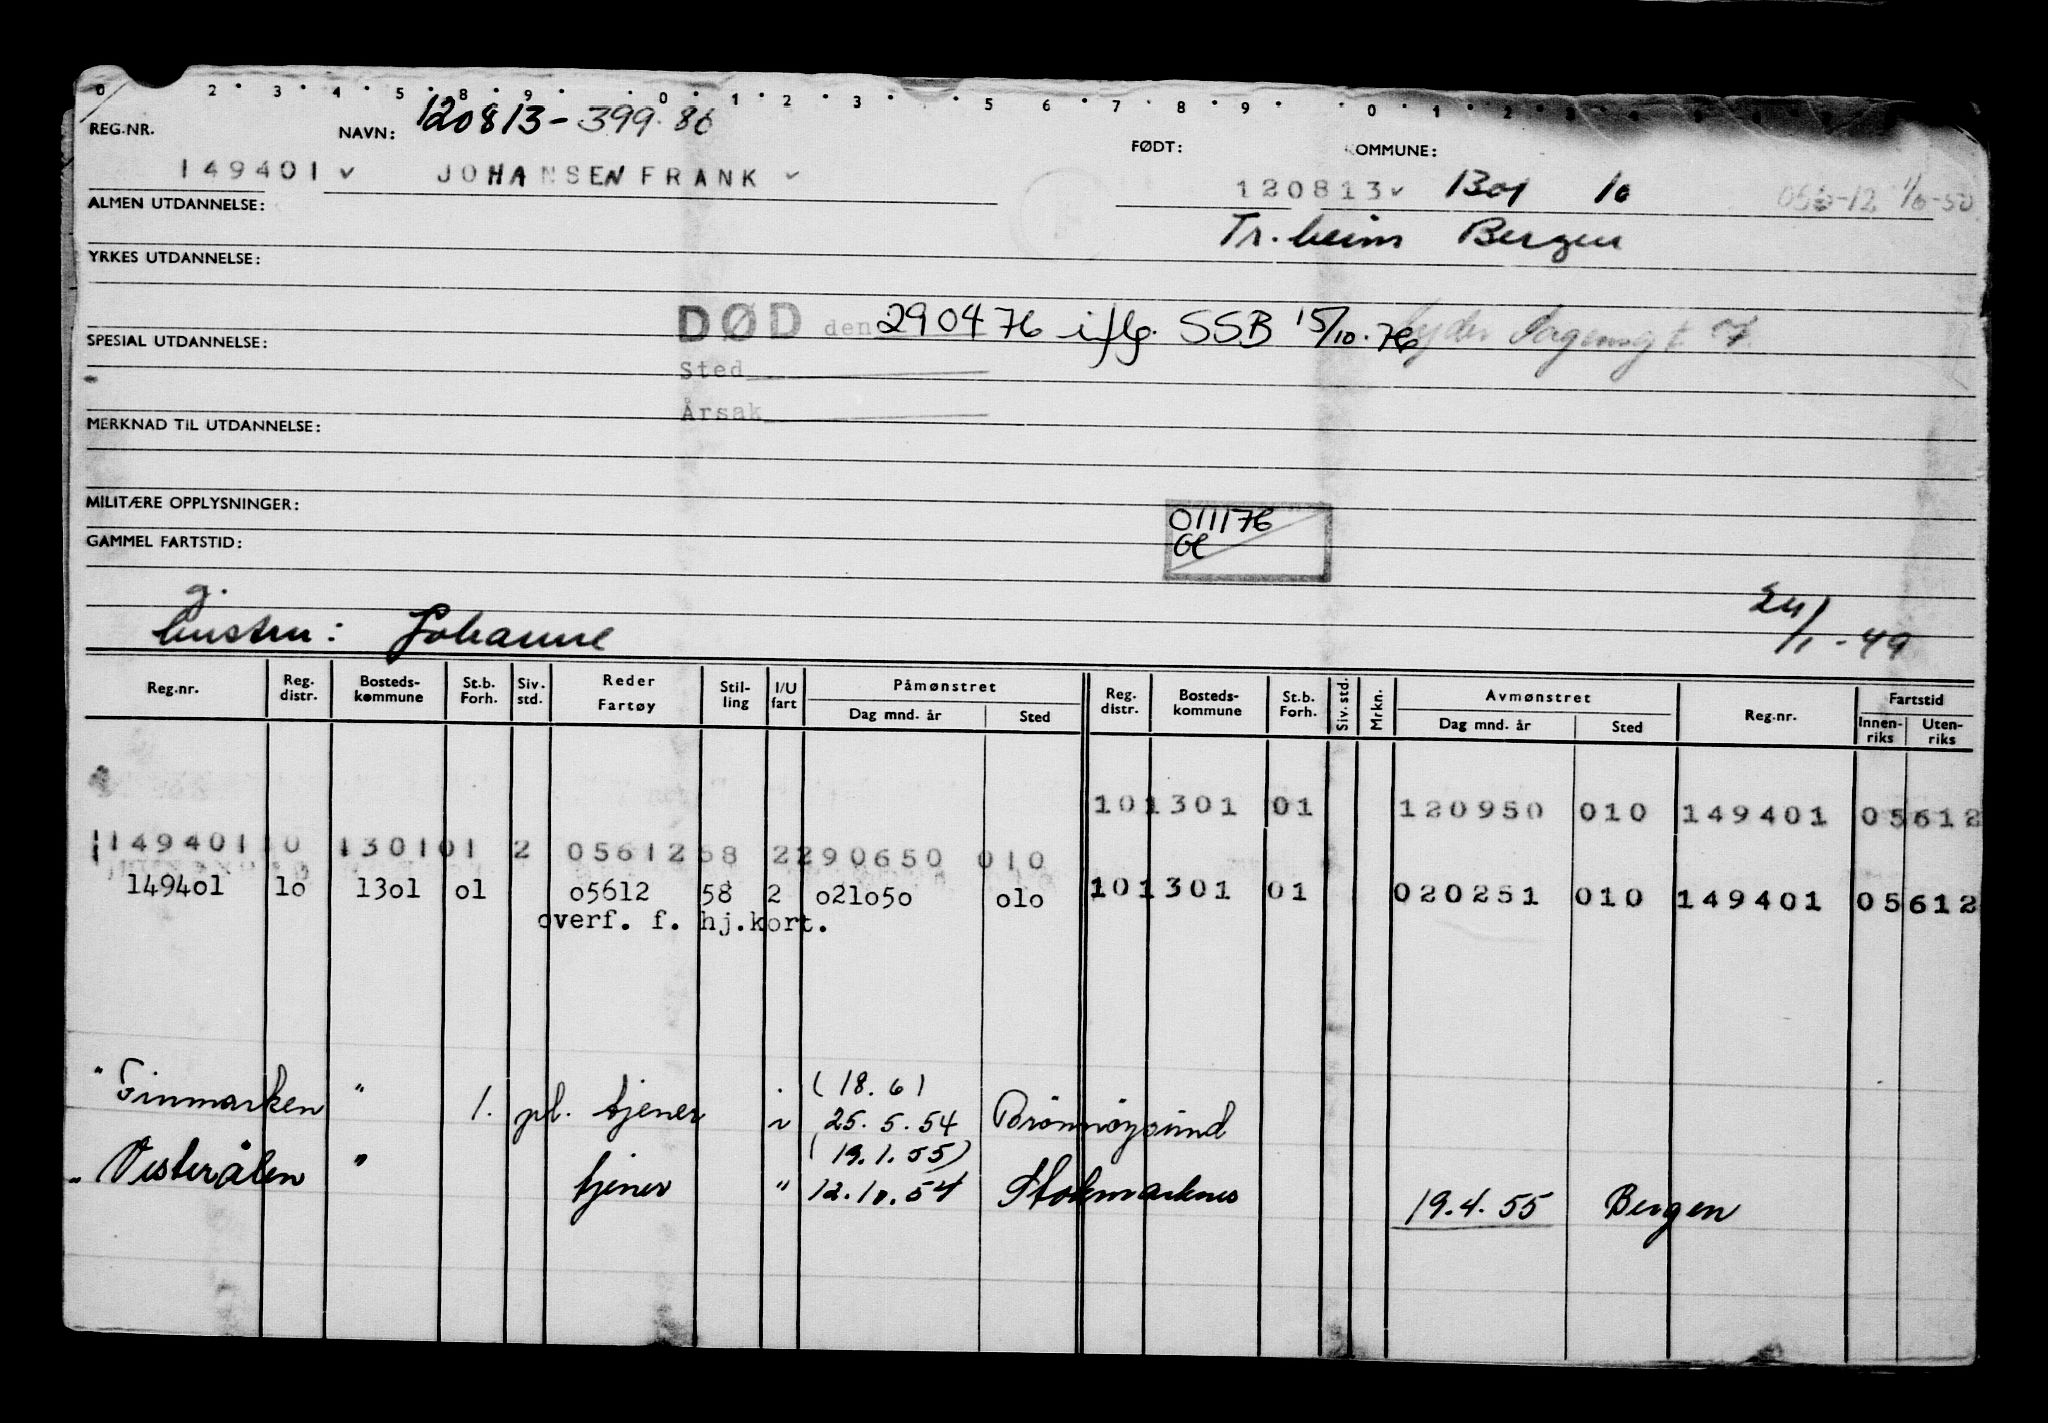 0 2 3 4 5 8 9 0 1 2 3 5 6 7 8 9 0 1 2
120813-399.86
REG.NR. NAVN: FØDT: KOMMUNE:
149401 ✓ JOHANSEN FRANK ✓ 120813 ✓ 1301 10
ALMEN UTDANNELSE:
Tr.heim Bergen
YRKES UTDANNELSE:
DØD den 290476 iflg. SSB 15/10.76
SPESIAL UTDANNELSE:
Sted
Årsak
MERKNAD TIL UTDANNELSE:
MILITÆRE OPPLYSNINGER:
011176
GAMMEL FARTSTID:
g.
hustru: Johanne 24/1-49
Reg.nr. Reg. distr. Bosteds-kommune St.b. Forh. Siv. std. Reder Fartøy Stil-ling I/U fart Påmønstret Dag mnd. år Sted Reg. distr. Bosteds-kommune St.b. Forh. Siv. std. Mrkn. Avmønstret Dag mnd. år Sted Reg.nr. Fartstid Innen-riks Uten-riks
101301 01 120950 010 149401 05612
149401 10 1301 01 2 05612 58 2 290650 010
149401 lo 13o1 o1 o5612 58 2 o21o5o olo 101301 01 020251 010 149401 05612
overf. f. hj.kort.
(18.6)
" Finmarken " 1. pl. tjener " 25.5.54 Brønnøysund
(19.1.55)
" Vesterålen " tjener " 12.10.54 Stokmarknes 19.4.55 Bergen